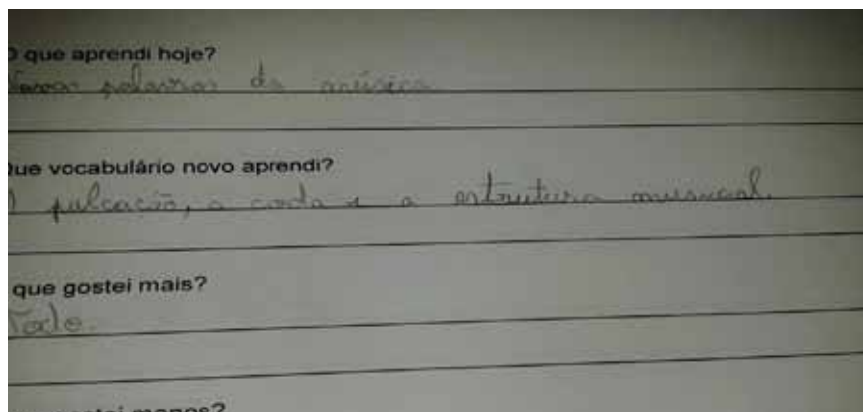 que aprendi hoje?
Novas palavras da música
que vocabulário novo aprendi?
A pulcação, a coda e a estrutura musical.
que gostei mais?
Todo.
gostei menos?